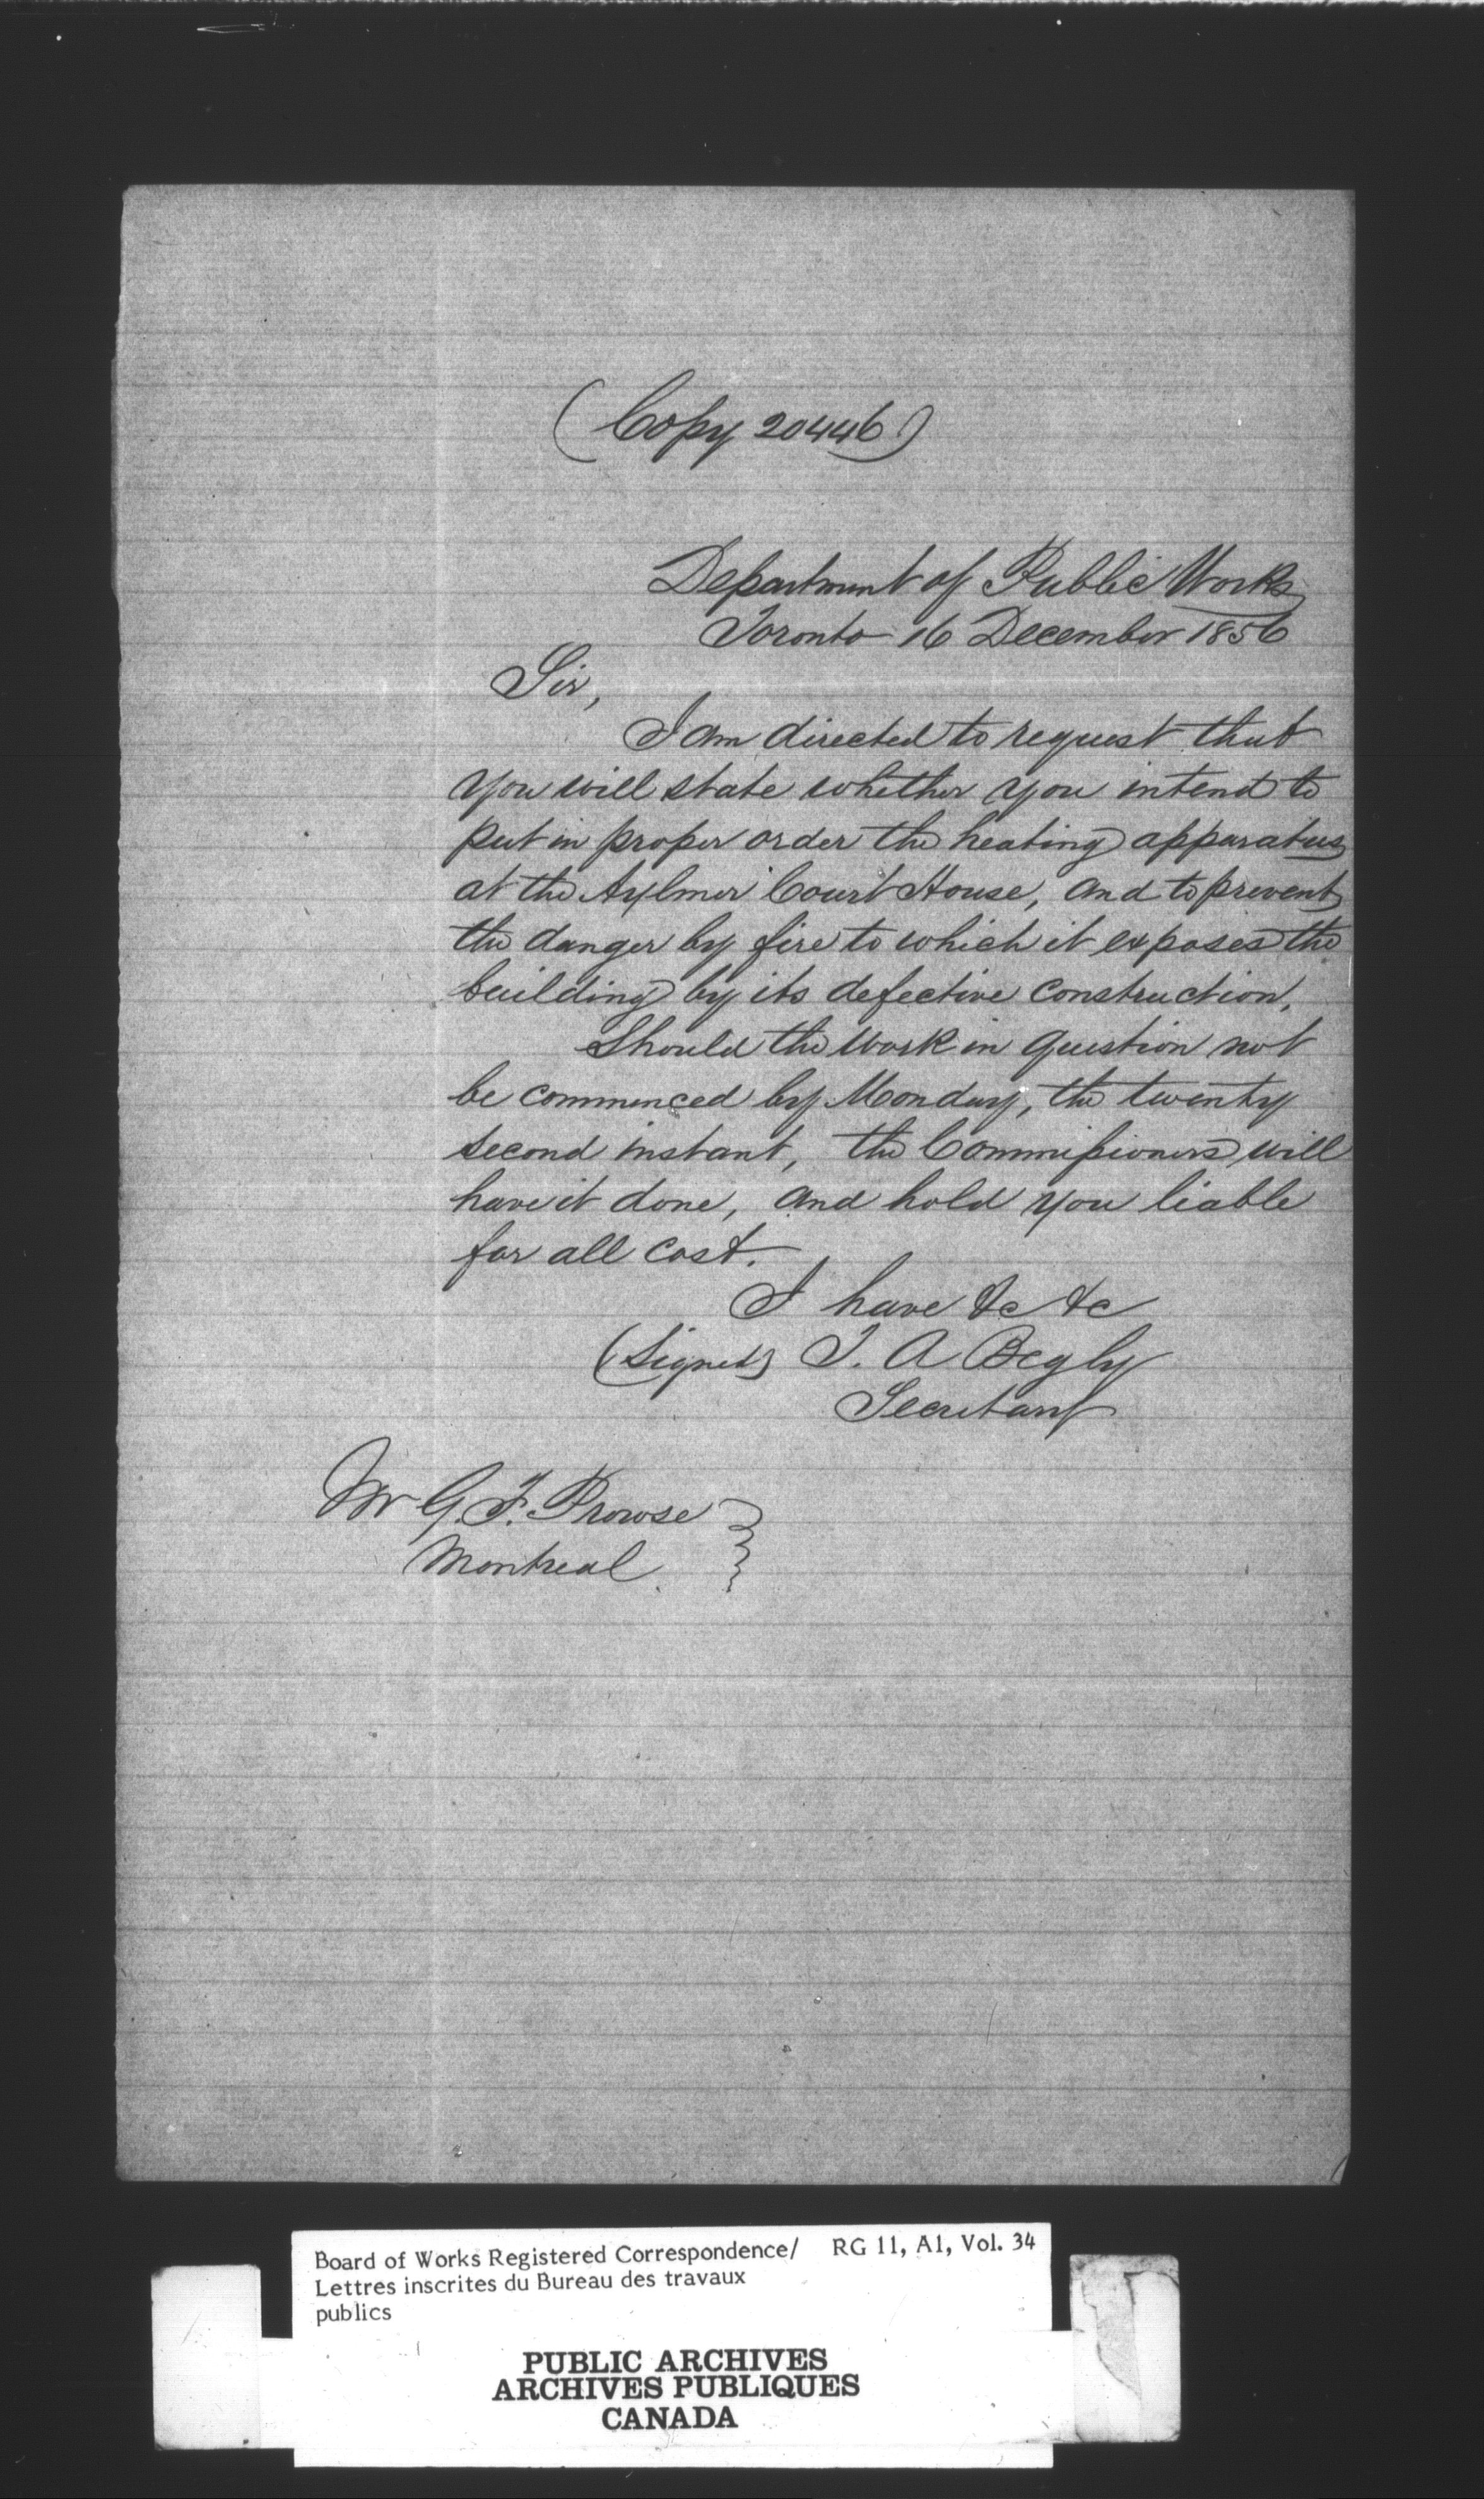 (Copy 20446)
Department of Public Works
Toronto 16 December 1856
Sir,
I am directed to request that
you will state whether you intend to
put in proper order the heating apparatus
at the Aylmer Court House, and to prevent
the danger by fire to which it exposes the
building by its defective construction.
Should the work in question not
be commenced by Monday, the twenty
second instant, the Commissioners will
have it done, and hold you liable
for all cost.
I have &c &c
(Signed) T. A Begly
Secretary
Mr G. F. Prowse
Montreal.
Board of Works Registered Correspondence/ RG 11, A1, Vol. 34
Lettres inscrites du Bureau des travaux
publics
PUBLIC ARCHIVES
ARCHIVES PUBLIQUES
CANADA